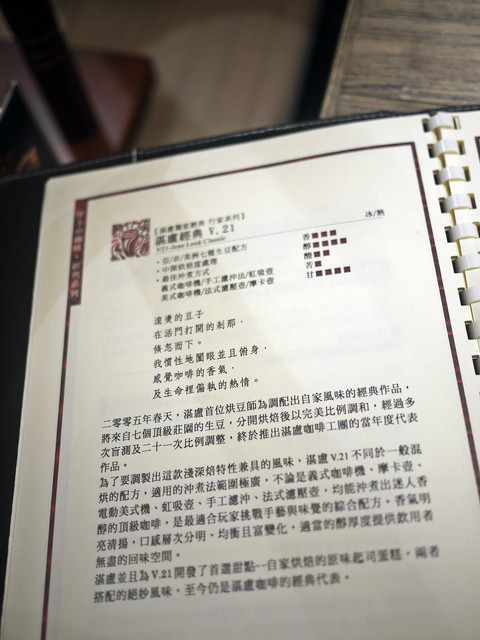 【湛盧獨家經典 行家系列】
湛盧經典 V.21
V21-Jean Look Classic
冰/熱
・亞/非/美洲七種生豆配方
・中深烘焙度處理
・最佳沖煮方式
義式咖啡機/手工濾沖法/虹吸壺
美式咖啡機/法式濾壓壺/摩卡壺
香
醇
酸
苦
甘
滾燙的豆子
在活門打開的剎那，
倏忽而下。
我慣性地闔眼並且俯身，
感覺咖啡的香氣，
及生命裡偏執的熱情。
二零零五年春天，湛盧首位烘豆師為調配出自家風味的經典作品，
將來自七個頂級莊園的生豆，分開烘焙後以完美比例調和，經過多
次盲測及二十一次比例調整，終於推出湛盧咖啡工團的當年度代表
作品。
為了要調製出這款淺深焙特性兼具的風味，湛盧 V.21 不同於一般混
烘的配方，適用的沖煮法範圍極廣，不論是義式咖啡機、摩卡壺、
電動美式機、虹吸壺、手工濾沖、法式濾壓壺，均能沖煮出迷人香
醇的頂級咖啡，是最適合玩家挑戰手藝與味覺的綜合配方。香氣明
亮清揚，口感層次分明、均衡且富變化，適當的醇厚度提供飲用者
無盡的回味空間。
湛盧並且為 V.21 開發了首選甜點--自家烘焙的原味起司蛋糕，兩者
搭配的絕妙風味，至今仍是湛盧咖啡的經典代表。